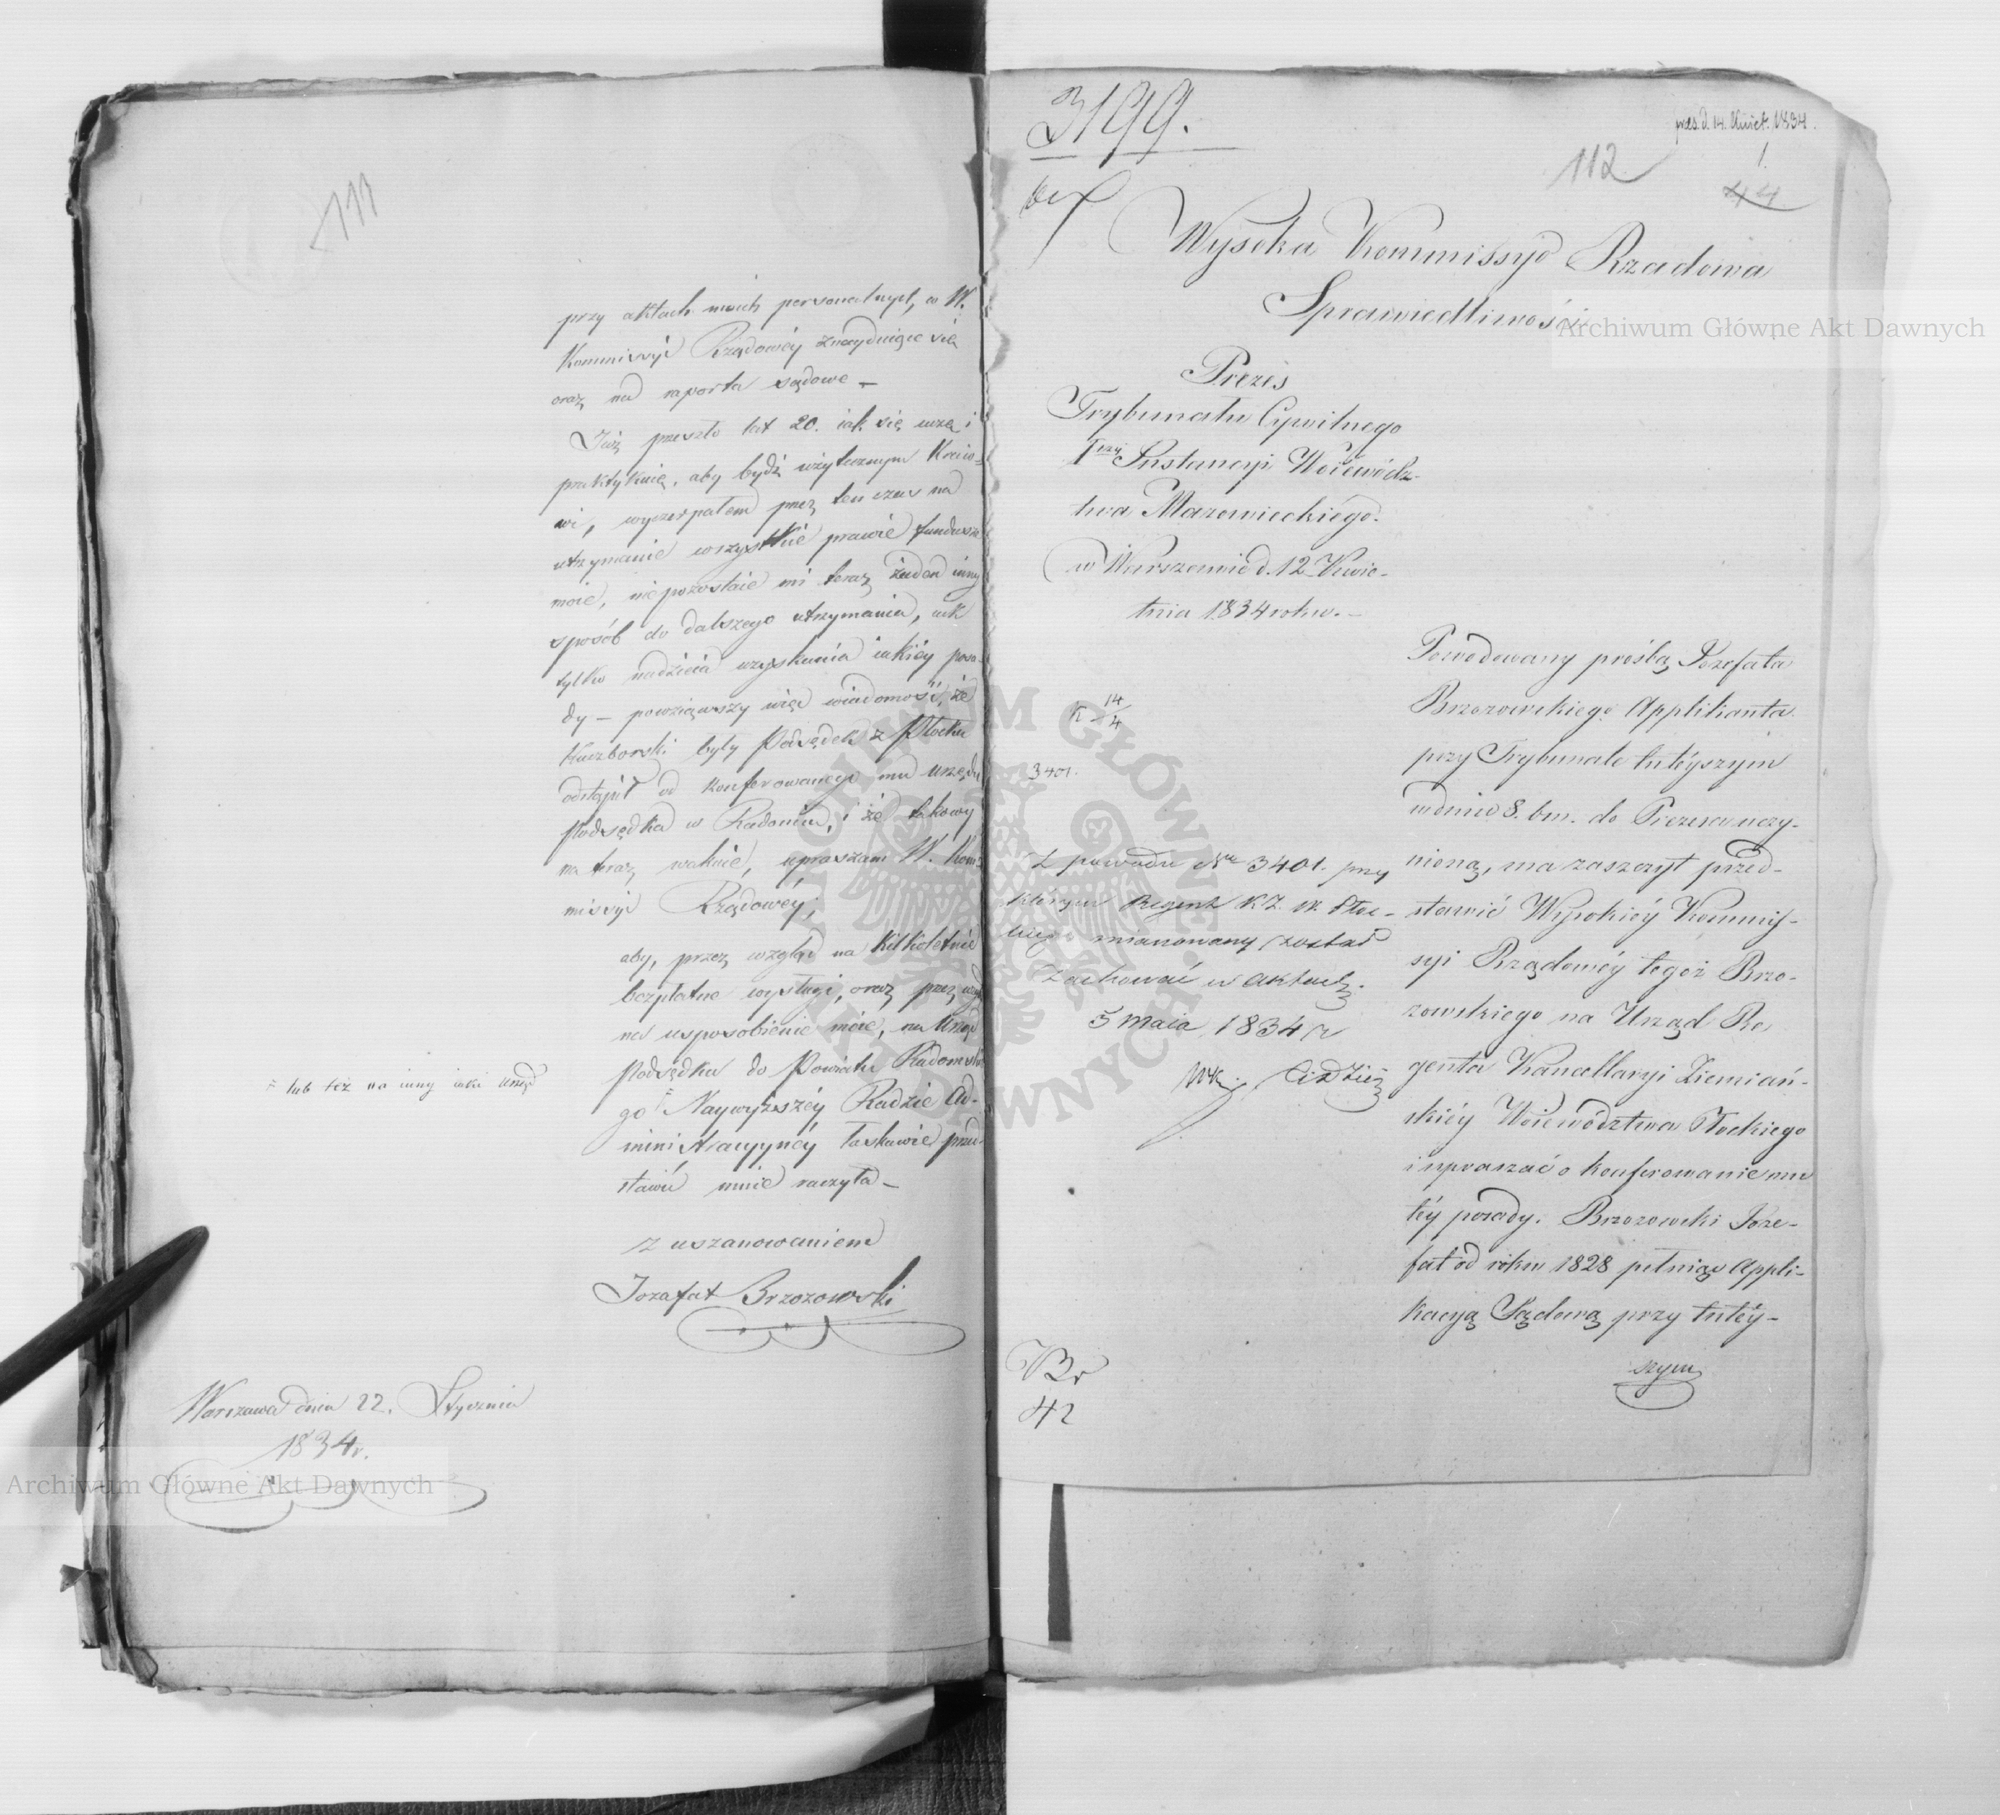 111
przy aktach moich personalnych, w W.
Kommissyi Rządowéy znayduiące się
oraz na raporta sądowe —
Już przeszło lat 20. iak się uczę i
praktykuię, aby bydź użytecznym Kraio-
wi, wyczerpałem przez ten czas na
utrzymanie wszystkie prawie fundusze
moie, niepozostaie mi teraz żaden inny
sposób do dalszego utrzymania, iak
tylko nadzieia uzyskania iakiéy posa-
dy — powziąwszy więc wiadomość, że
Kaczborski były Podsędek z Płocka
odstąpił od konferowanego mu urzędu
Podsędka w Radomiu, i że takowy
na teraz wakuie, upraszam W. Kom-
missyi Rządowéy,
aby, przez wzgląd na kilkoletnie
bezpłatne wysługi, oraz przez wzgl
na usposobienie moie, na Urząd
Podsędka do Powiatu Radomskie
go Naywyższéy Radzie Ad-
ministracyynéy łaskawie przed-
stawić mnie raczyła —
lub też na inny iaki urząd
z uszanowaniem
Jozafat Brzozowski
Warszawa dnia 22. Stycznia
1834r.
3199.
pres. d. 14. Kwiet. 1834.
1.
112
44
Wysoka Kommissyo Rządowa
Sprawiedliwości
Prezes
Trybunału Cywilnego
Iszéy Instancyi Woiewódz-
twa Mazowieckiégo.
w Warszawie d. 12 Kwie-
tnia 1834 roku. —
K 14/4
3401.
Z powodu Nru 3401. przy
którym Regent K.Z. W. Płoc-
kiego mianowany został
Zachować w aktach.
5 Maia 1834 r
Powodowany prośbą Jozefata
Brzozowskiego Applikanta
przy Trybunale tutéyszym
w dniu 8. bm. do Prezesa uczy-
nioną, ma zaszczyt przed-
stawić Wysokiéy Kommis-
syi Rządowéy tegoż Brzo-
zowskiego na Urząd Re-
genta Kancellaryi Ziemiań-
skiéy Woiewództwa Płockiego
i upraszać o konferowanie mu
téy posady. Brzozowski Joze-
fat od roku 1828 pełniąc Appli-
kacyą Sądową przy tutéy-
szym
Br
42
Archiwum Główne Akt Dawnych
Archiwum Główne Akt Dawnych
ARCHIWUM GŁÓWNE AKT DAWNYCH